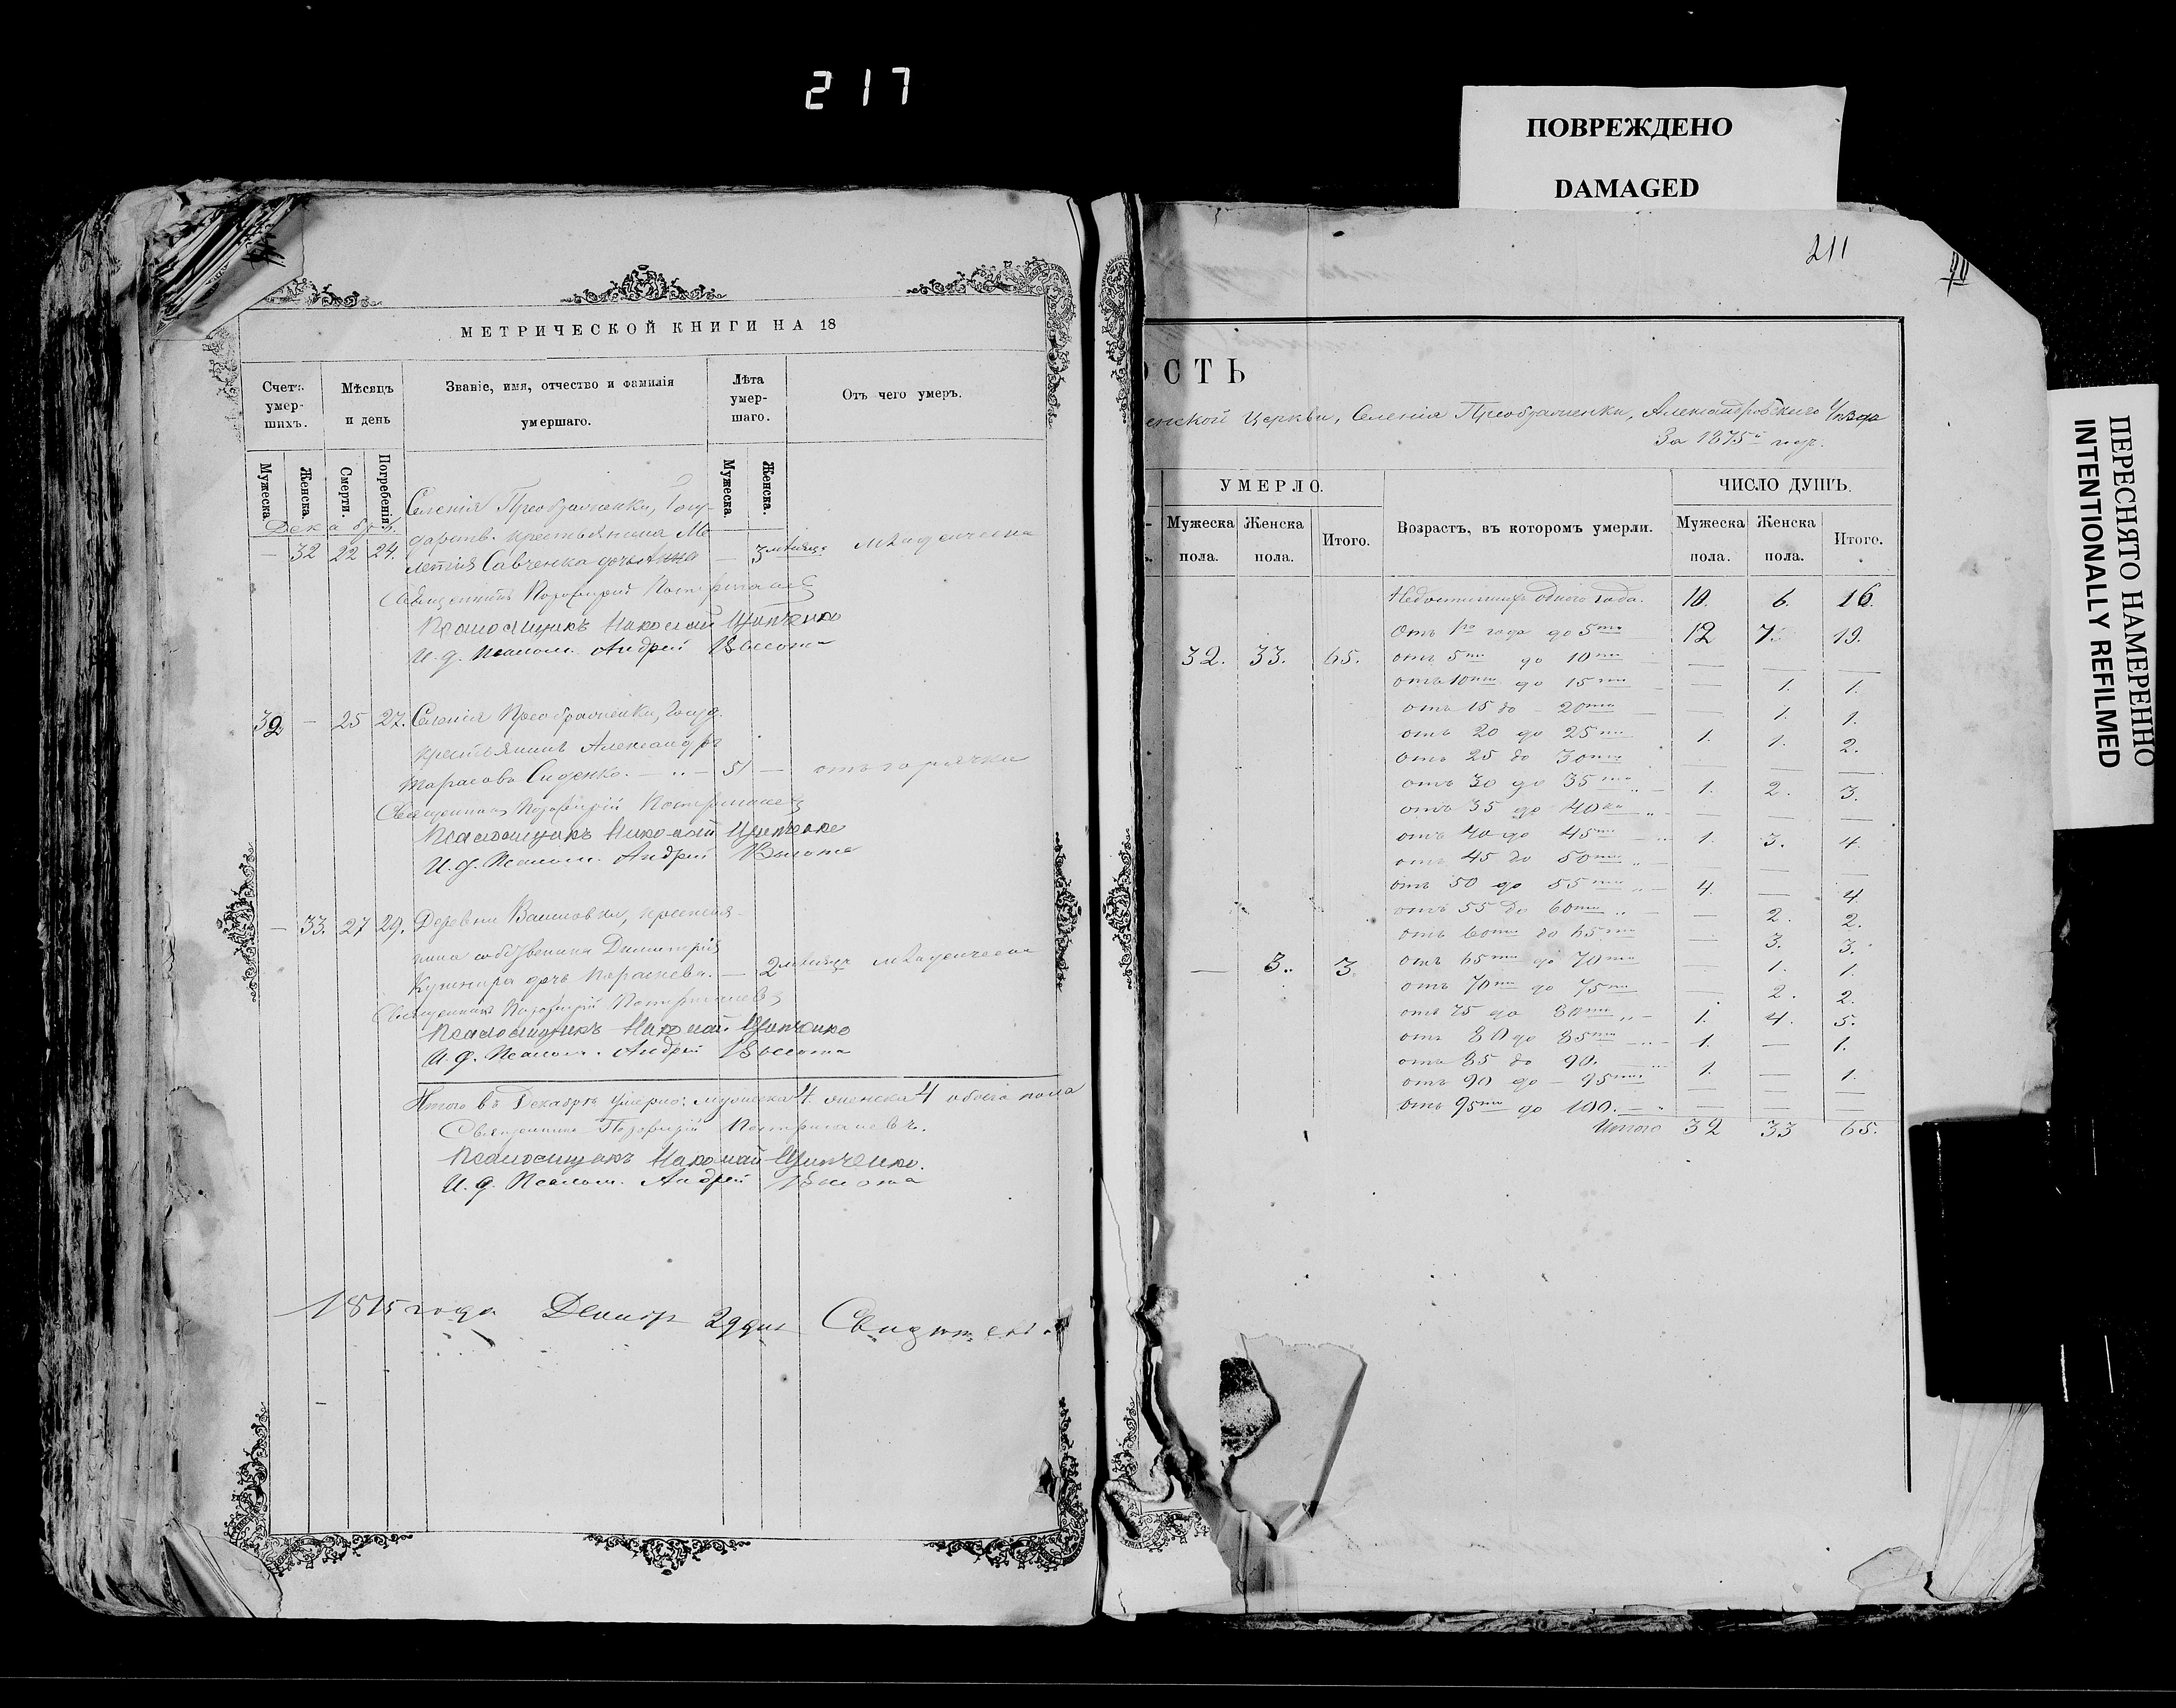 217
ПОВРЕЖДЕНО
DAMAGED
ПЕРЕСНЯТО НАМЕРЕННО
INTENTIONALLY REFILMED
МЕТРИЧЕСКОЙ КНИГИ НА 18
Счетъ умер-шихъ.
Мѣсяцъ и день
Званіе, имя, отчество и фамилія умершаго.
Лѣта умер-шаго.
Отъ чего умеръ.
Мужеска.
Женска.
Смерти.
Погребенія.
Мужеска.
Женска.
Декабрь
Селенія Преображенки, Госу-
— 32 22 24. дарств. крестьянина Ме
летія Савченка дочь Анна — 3 мѣсяца младенческа
Священникъ Порфирій
Псаломщикъ Николай
И. д. Псалом. Андрей Высота
32 — 25 27. Селенія Преображенки, Госуд.
крестьянинъ Александръ
Тарасовъ Сиденко. — 51 — отъ горячки
Священникъ Порфирій
Псаломщикъ Николай
И. д. Псалом. Андрей Высота
— 33. 27 29. Деревни крестья-
нина собственника Димитрія
Кушнира дочь — 2 мѣсяца младенческа
Священникъ Порфирій
Псаломщикъ Николай
И. д. Псалом. Андрей Высота
Итого въ Декабрѣ умерло: мужеска 4 женска 4 обоего пола
Священникъ Порфирій
Псаломщикъ Николай
И. д. Псалом. Андрей Высота
1875 года 29 дня
211
ОСТЬ
енской Церкви, Селенія Преображенки, Александровскаго Уѣзда
За 1875й годъ.
УМЕРЛО.
Мужеска пола.
Женска пола.
Итого.
Возрастъ, въ которомъ умерли.
ЧИСЛО ДУШЪ.
Мужеска пола.
Женска пола.
Итого.
32. 33. 65.
— 3. 3
Недостигшихъ одного года. 10. 6. 16.
Отъ 1го года до 5ти 12 7. 19.
отъ 5ти до 10ти — — —
отъ 10ти до 15ти — 1. 1.
отъ 15 до 20ти — 1. 1.
отъ 20 до 25ти 1. 1. 2.
отъ 25 до 30ти — — —
отъ 30 до 35ти 1. 2. 3.
отъ 35 до 40ка — — —
отъ 40 до 45ти 1. 3. 4.
отъ 45 до 50ти — — —
отъ 50 до 55ти 4. — 4
отъ 55 до 60ти — 2. 2.
отъ 60ти до 65ти — 3. 3.
отъ 65ти до 70ти — 1. 1.
отъ 70ти до 75ти — 2. 2.
отъ 75 до 80ти 1. 4. 5.
отъ 80 до 85ти 1. — 1.
отъ 85 до 90. 1. — 1.
отъ 90 до 95ти — — —
отъ 95ти до 100. — — —
Итого 32 33 65.